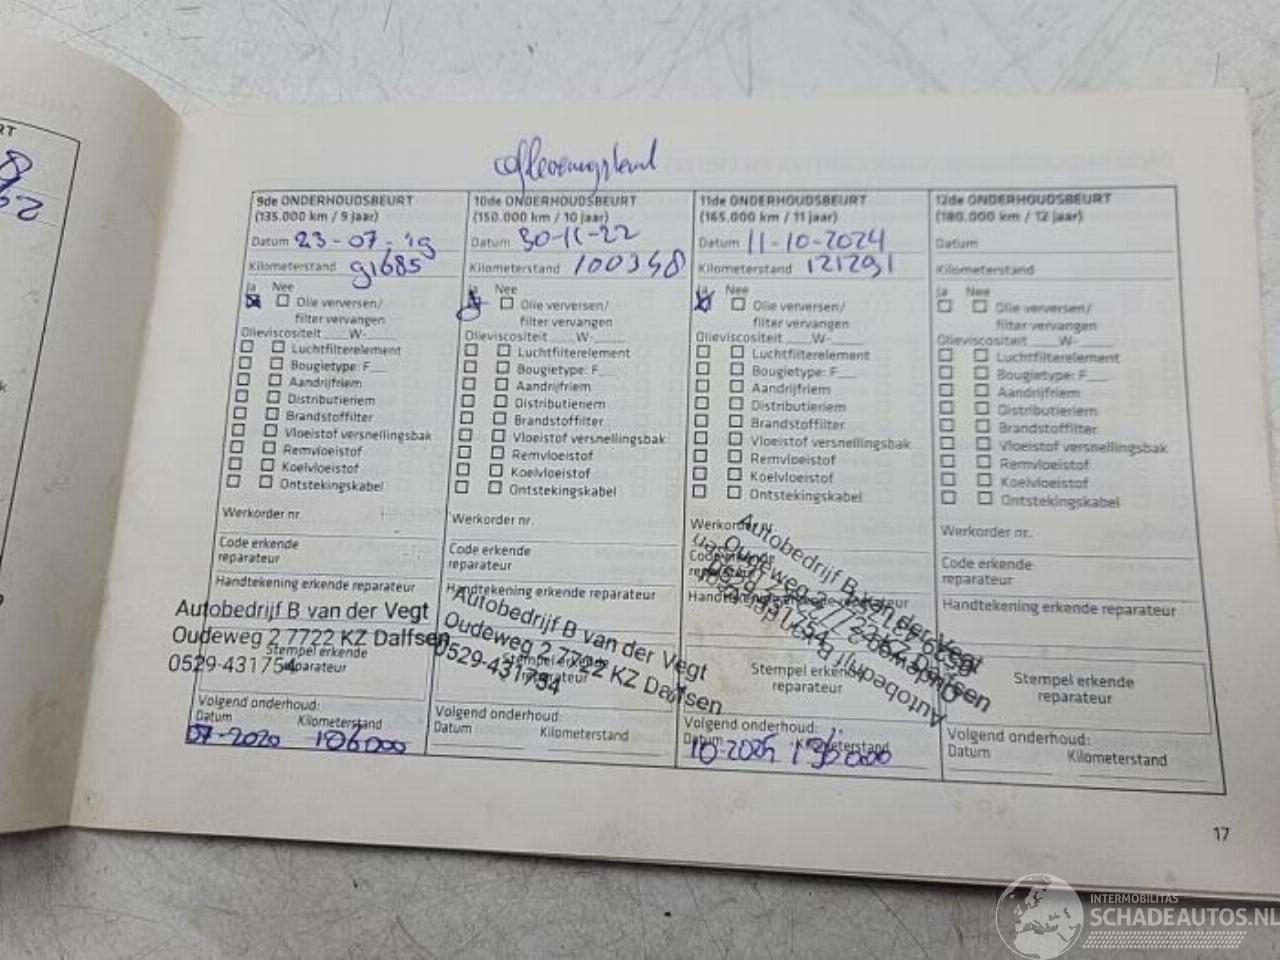 afleveringsbeurt
9de ONDERHOUDSBEURT
(135.000 km / 9 jaar)
Datum 23-07-'19
Kilometerstand 91685
Ja Nee
Olie verversen/
filter vervangen
Olieviscositeit ___W-___
Luchtfilterelement
Bougietype: F__
Aandrijfriem
Distributieriem
Brandstoffilter
Vloeistof versnellingsbak
Remvloeistof
Koelvloeistof
Ontstekingskabel
Werkorder nr.
Code erkende
reparateur
Handtekening erkende reparateur
Autobedrijf B van der Vegt
Oudeweg 2 7722 KZ Dalfsen
0529-431754
Stempel erkende
reparateur
Volgend onderhoud:
Datum Kilometerstand
07-2020 106000
10de ONDERHOUDSBEURT
(150.000 km / 10 jaar)
Datum 30-11-22
Kilometerstand 100348
Ja Nee
Olie verversen/
filter vervangen
Olieviscositeit ___W-___
Luchtfilterelement
Bougietype: F__
Aandrijfriem
Distributieriem
Brandstoffilter
Vloeistof versnellingsbak
Remvloeistof
Koelvloeistof
Ontstekingskabel
Werkorder nr.
Code erkende
reparateur
Handtekening erkende reparateur
Autobedrijf B van der Vegt
Oudeweg 2 7722 KZ Dalfsen
0529-431754
Stempel erkende
reparateur
Volgend onderhoud:
Datum Kilometerstand
11de ONDERHOUDSBEURT
(165.000 km / 11 jaar)
Datum 11-10-2024
Kilometerstand 121291
Ja Nee
Olie verversen/
filter vervangen
Olieviscositeit ___W-___
Luchtfilterelement
Bougietype: F__
Aandrijfriem
Distributieriem
Brandstoffilter
Vloeistof versnellingsbak
Remvloeistof
Koelvloeistof
Ontstekingskabel
Werkorder nr.
Code erkende
reparateur
Handtekening erkende reparateur
Autobedrijf B van der Vegt
Oudeweg 2 7722 KZ Dalfsen
0529-431754
Stempel erkende
reparateur
Volgend onderhoud:
Datum Kilometerstand
10-2025 136000
12de ONDERHOUDSBEURT
(180.000 km / 12 jaar)
Datum
Kilometerstand
Ja Nee
Olie verversen/
filter vervangen
Olieviscositeit ___W-___
Luchtfilterelement
Bougietype: F__
Aandrijfriem
Distributieriem
Brandstoffilter
Vloeistof versnellingsbak
Remvloeistof
Koelvloeistof
Ontstekingskabel
Werkorder nr.
Code erkende
reparateur
Handtekening erkende reparateur
Stempel erkende
reparateur
Volgend onderhoud:
Datum Kilometerstand
17
INTERMOBILITAS
SCHADEAUTOS.NL